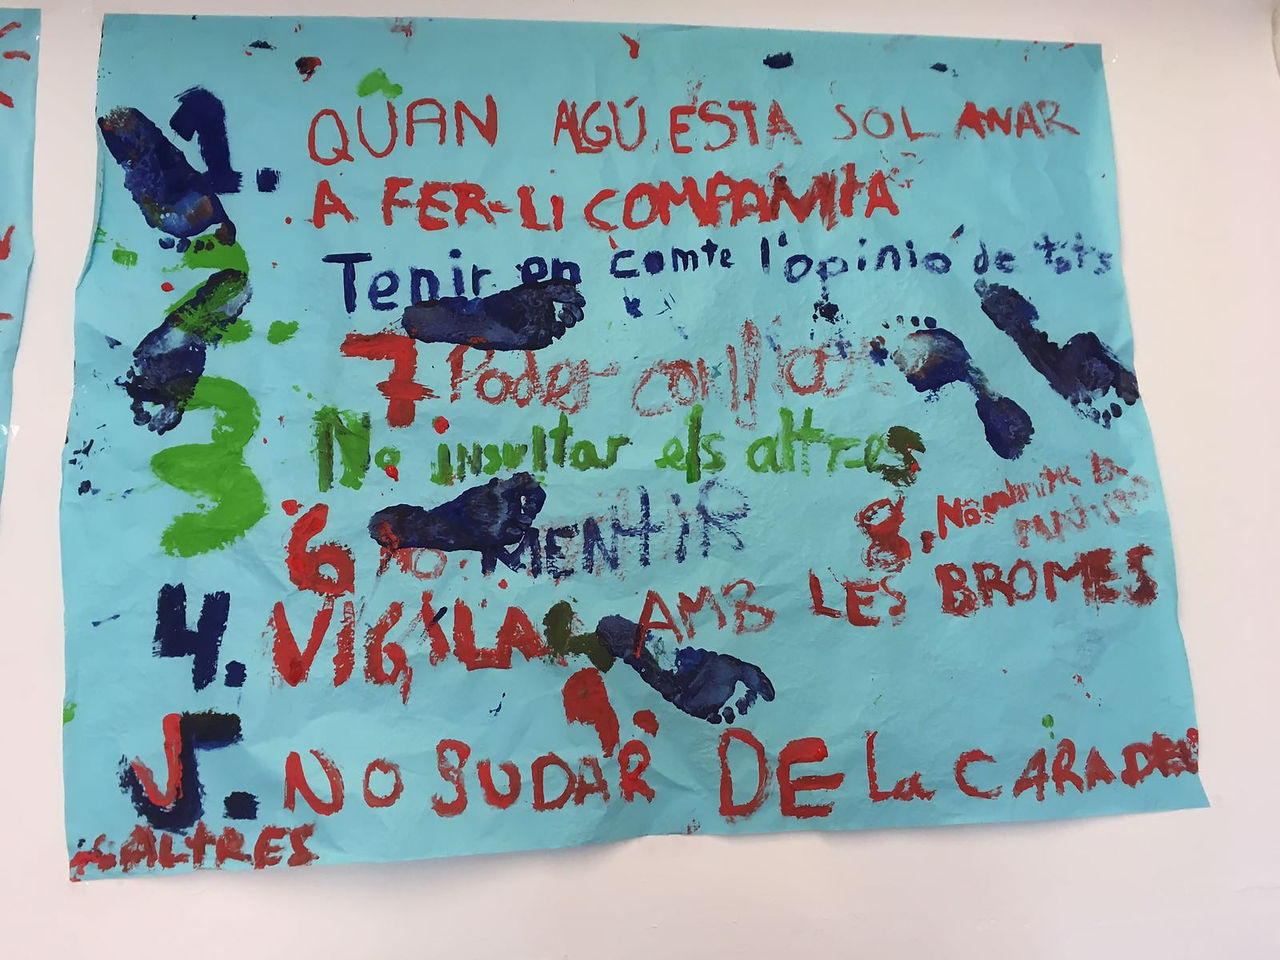 1. QUAN ALGÚ ESTA SOL ANAR
A FER-LI COMPAMIA
2 Tenir en comte l'opinio de tots
7 Poder
3 No insultar els altres
6 NO MENTIR
8. No
4. VIGILAR AMB LES BROMES
9.
5. NO SUDAR DE La CARA DELS
ALTRES